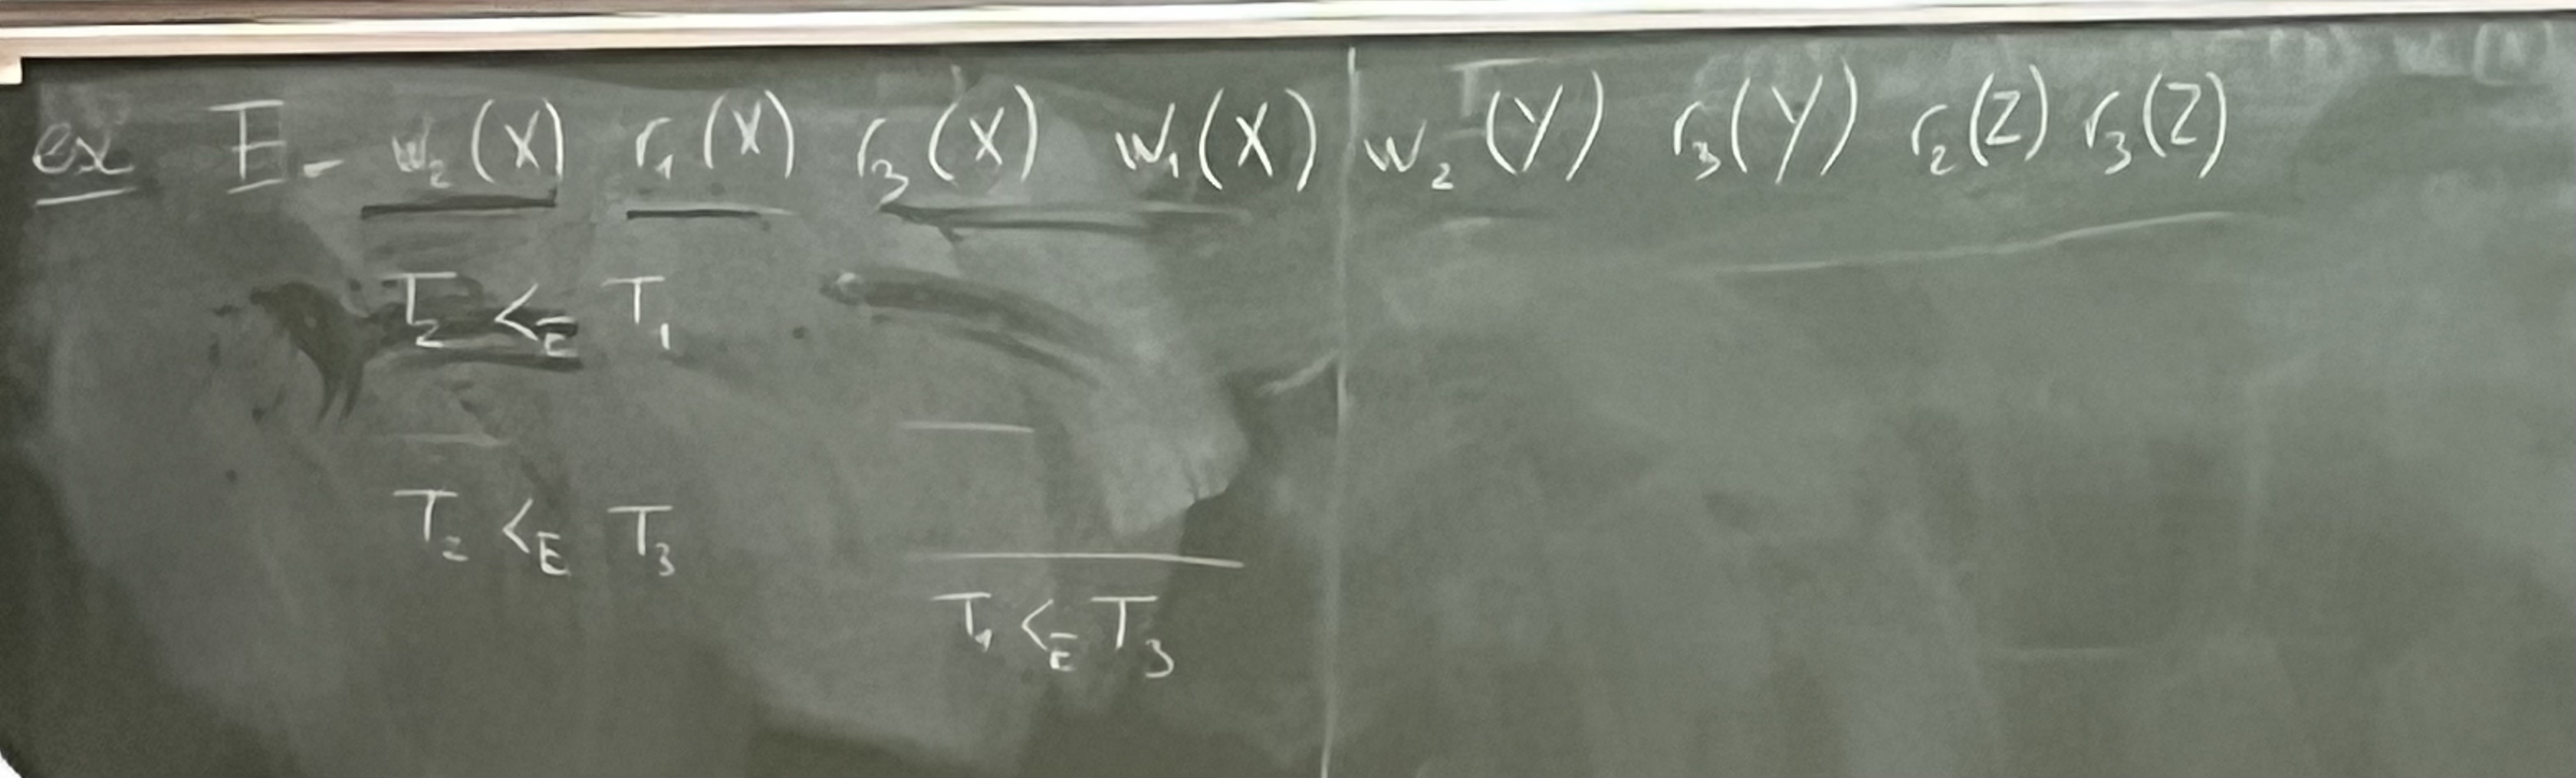 ex E = w₂(X) r₁(X) r₃(X) w₁(X) w₂(Y) r₃(Y) r₂(Z) r₃(Z)
T₂ <_E T₁
T₂ <_E T₃
T₁ <_E T₃